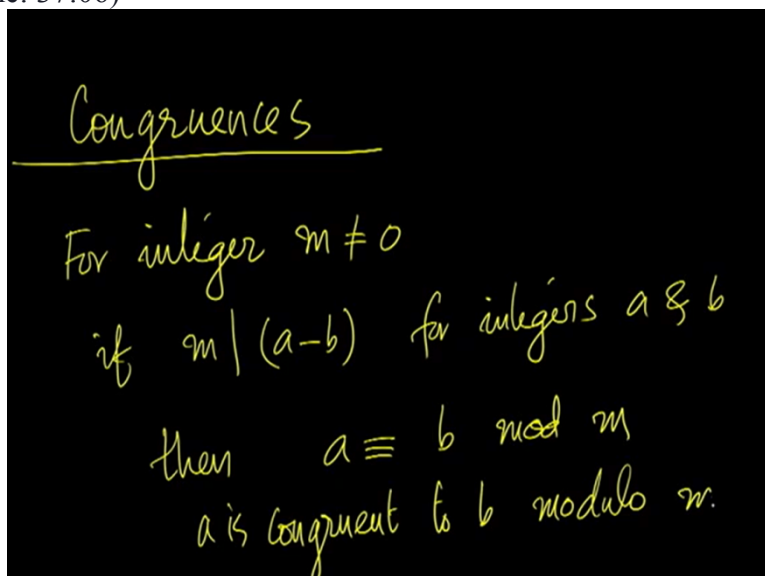 Congruences
For integer m ≠ 0
if m | (a-b) for integers a & b
then a ≡ b mod m
a is congruent to b modulo m.